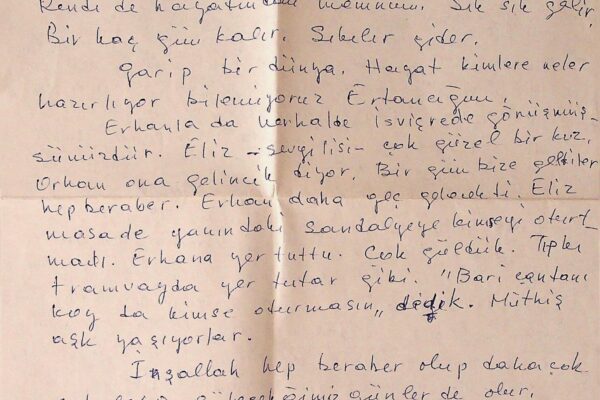 Kendi de hayatından memnun. Sık sık gelir
Bir kaç gün kalır. Sıkılır gider.
Garip bir dünya. Hayat kimlere neler
hazırlıyor bilemiyoruz Ertancığım.
Erhanla da herhalde İsviçrede görüşmüş-
sünüzdür. Eliz - sevgilisi - çok güzel bir kız.
Orhan ona gelincik diyor. Bir gün bize geldiler
hep beraber. Erhan daha geç gelecekti. Eliz
masada yanındaki sandalyeye kimseyi oturt-
madı. Erhana yer tuttu. Çok güldük. Tıpkı
tramvayda yer tutar gibi. "Bari çantanı
koy da kimse oturmasın" dedik. Müthiş
aşk yaşıyorlar.
İnşallah hep beraber olup daha çok
güleceğimiz günler de olur.